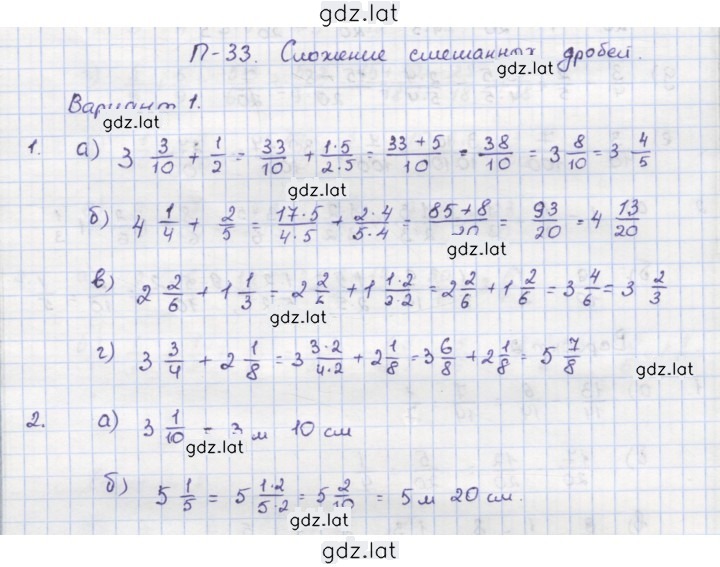 gdz.lat
П-33. Сложение смешанных дробей.
gdz.lat
Вариант 1.
gdz.lat
1. а) 3 3/10 + 1/2 = 33/10 + 1·5/2·5 = 33+5/10 = 38/10 = 3 8/10 = 3 4/5
gdz.lat
б) 4 1/4 + 2/5 = 17·5/4·5 + 2·4/5·4 = 85+8/20 = 93/20 = 4 13/20
gdz.lat
в) 2 2/6 + 1 1/3 = 2 2/6 + 1 1·2/3·2 = 2 2/6 + 1 2/6 = 3 4/6 = 3 2/3
gdz.lat
г) 3 3/4 + 2 1/8 = 3 3·2/4·2 + 2 1/8 = 3 6/8 + 2 1/8 = 5 7/8
gdz.lat
2. а) 3 1/10 = 3 м 10 см
gdz.lat
б) 5 1/5 = 5 1·2/5·2 = 5 2/10 = 5 м 20 см.
gdz.lat
gdz.lat